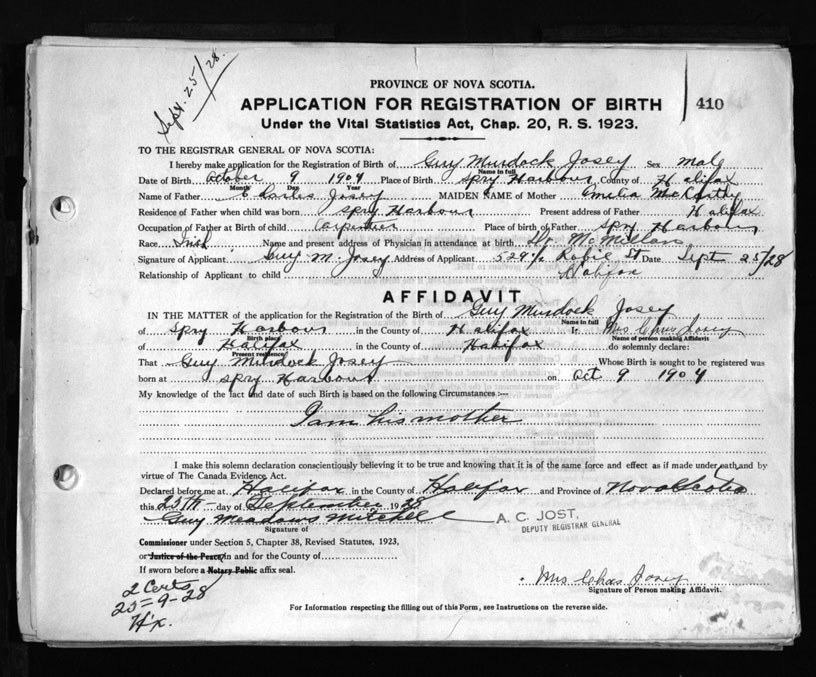 Sept. 25/28.
PROVINCE OF NOVA SCOTIA.
APPLICATION FOR REGISTRATION OF BIRTH
410
Under the Vital Statistics Act, Chap. 20, R. S. 1923.
TO THE REGISTRAR GENERAL OF NOVA SCOTIA:
I hereby make application for the Registration of Birth of Guy Murdock Josey Sex male
Name in full
Date of Birth October 9 1904 Place of Birth Spry Harbour County of Halifax
Month Day Year
Name of Father Charles Josey MAIDEN NAME of Mother Amelia McCarthy
Residence of Father when child was born Spry Harbour Present address of Father Halifax
Occupation of Father at Birth of child Carpenter Place of birth of Father Spry Harbour
Race Irish Name and present address of Physician in attendance at birth Dr. McMillan
Signature of Applicant Guy M. Josey Address of Applicant 529½ Robie St Date Sept 25/28
Relationship of Applicant to child Halifax
AFFIDAVIT
IN THE MATTER of the application for the Registration of the Birth of Guy Murdock Josey
Name in full
of Spry Harbour in the County of Halifax I, Mrs Chas Josey
Birth place Name of person making Affidavit
of Halifax in the County of Halifax do solemnly declare:
Present residence
That Guy Murdock Josey Whose Birth is sought to be registered was
born at Spry Harbour on Oct 9 1904
My knowledge of the fact and date of such Birth is based on the following Circumstances :—
I am his mother
I make this solemn declaration conscientiously believing it to be true and knowing that it is of the same force and effect as if made under oath, and by
virtue of The Canada Evidence Act.
Declared before me at Halifax in the County of Halifax and Province of Nova Scotia
this 25th day of September 1928
Guy Meadows Mitchell
A. C. JOST,
DEPUTY REGISTRAR GENERAL
Signature of
Commissioner under Section 5, Chapter 38, Revised Statutes, 1923,
or Justice of the Peace, in and for the County of
If sworn before a Notary Public affix seal.
2 Certs
25=9-28
Hx.
Mrs Chas Josey
Signature of Person making Affidavit.
For Information respecting the filling out of this Form, see Instructions on the reverse side.